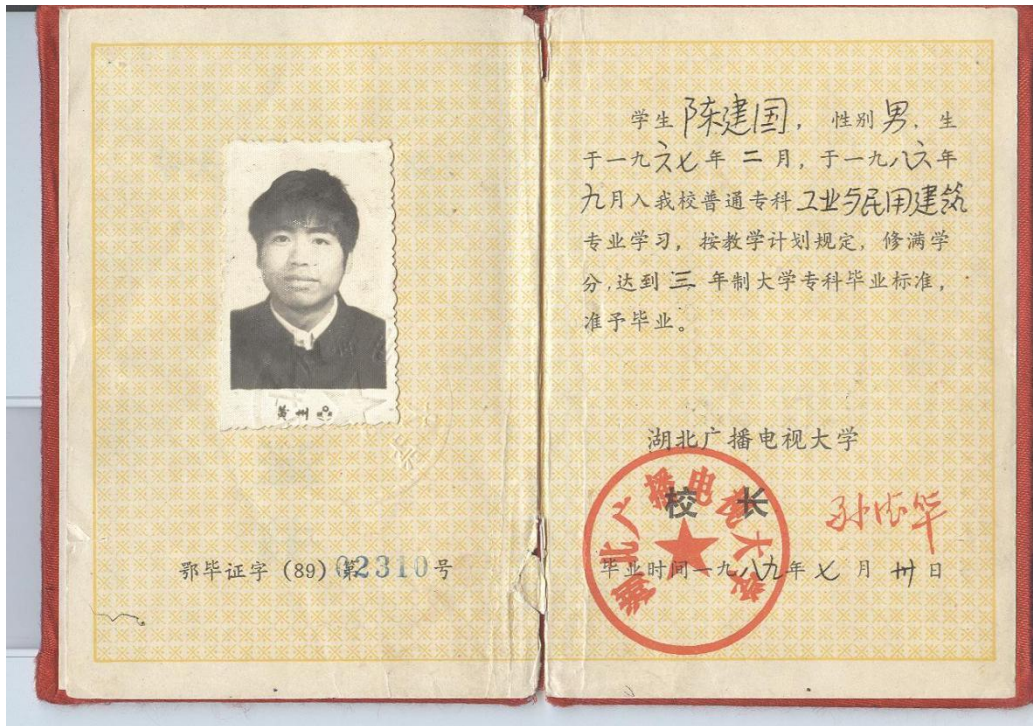 黄州
鄂毕证字 (89) 第02310号
学生陈建国，性别男，生
于一九六七年二月，于一九八六年
九月入我校普通专科工业与民用建筑
专业学习，按教学计划规定，修满学
分，达到三年制大学专科毕业标准，
准予毕业。
湖北广播电视大学
湖北广播电视大学
校长
毕业时间一九八九年七月卅日